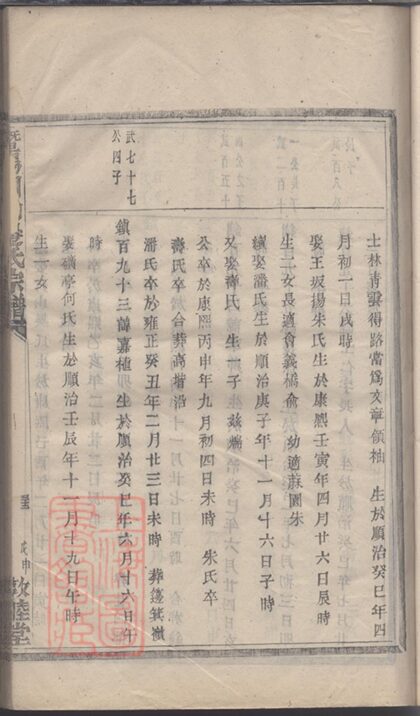 士林青雲得路當爲文章領袖　生於順治癸巳年四
月初二日戌時
娶王坂揚朱氏生於康熙壬寅年四月廿六日辰時
生二女長適會義橋俞　幼適蘇園朱
續娶潘氏生於順治庚子年十一月十六日子時
又娶蔣氏　生一子　兹端
公卒於康熙丙申年九月初四日未時　朱氏卒
蔣氏卒　合葬高堦沿
潘氏卒於雍正癸丑年二月廿三日未時　葬箕嶺
武七十七
公四子
鎮百九十三諱嘉植　生於順治癸巳年六月十六日午
時
娶嶺亭何氏生於順治壬辰年十一月十九日午時
生一女
氏宗譜
戊申
敦睦堂